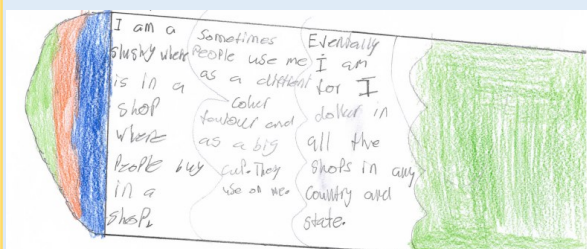 I am a
slushy where
is in a
shop
where
People buy
in a
shop.
Sometimes
People use me
as a diffrent
coler
and
as a big
cup. They
use on me.
Eventally
I am
for I
doller in
all the
shops in any
country and
state.